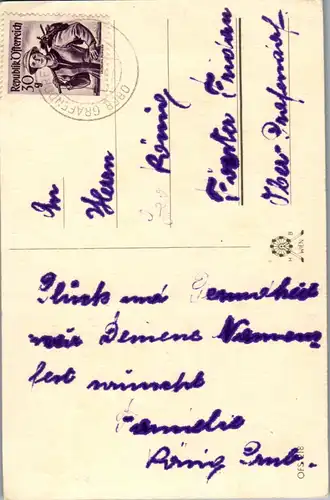 Republik Österreich
30 g
OBER GRAFEND
An
Herrn
König
Förster Friedrich
Ober-Grafendorf
H B
WIEN
Glück und Gesundheit
zur Deinem Namens
fest wünscht
Familie
König
OFS 218